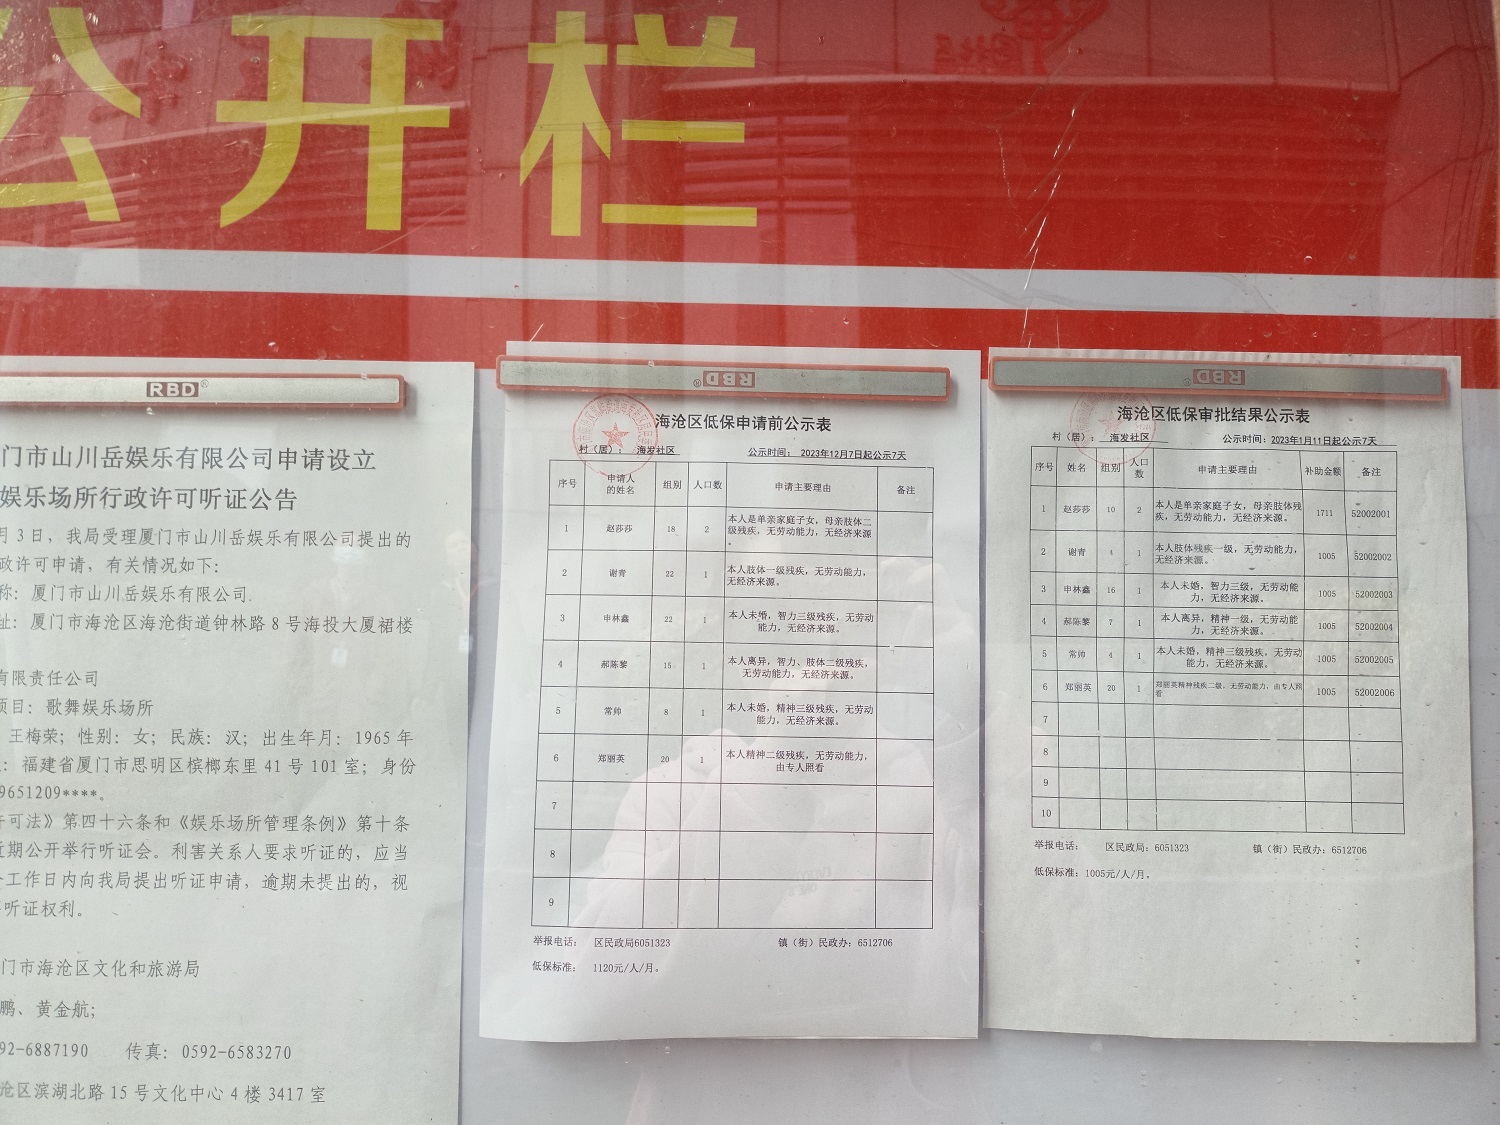 公开栏
RBD®
门市山川岳娱乐有限公司申请设立
娱乐场所行政许可听证公告
月3日，我局受理厦门市山川岳娱乐有限公司提出的
政许可申请，有关情况如下：
称：厦门市山川岳娱乐有限公司
址：厦门市海沧区海沧街道钟林路8号海投大厦裙楼
有限责任公司
项目：歌舞娱乐场所
王梅荣；性别：女；民族：汉；出生年月：1965年
：福建省厦门市思明区槟榔东里41号101室；身份
9651209****。
许可法》第四十六条和《娱乐场所管理条例》第十条
近期公开举行听证会。利害关系人要求听证的，应当
个工作日内向我局提出听证申请，逾期未提出的，视
听证权利。
门市海沧区文化和旅游局
鹏、黄金航；
92-6887190 传真：0592-6583270
沧区滨湖北路15号文化中心4楼3417室
RBD®
海沧区低保申请前公示表
村（居）： 海发社区 公示时间： 2023年12月7日起公示7天
序号 申请人的姓名 组别 人口数 申请主要理由 备注
1 赵莎莎 18 2 本人是单亲家庭子女，母亲肢体二级残疾，无劳动能力，无经济来源。
2 谢青 22 1 本人肢体一级残疾，无劳动能力，无经济来源。
3 申林鑫 22 1 本人未婚，智力三级残疾，无劳动能力，无经济来源。
4 郝陈黎 15 1 本人离异，智力、肢体二级残疾，无劳动能力，无经济来源。
5 常帅 8 1 本人未婚，精神三级残疾，无劳动能力，无经济来源。
6 郑丽英 20 1 本人精神二级残疾，无劳动能力，由专人照看
7
8
9
举报电话： 区民政局6051323 镇（街）民政办：6512706
低保标准： 1120元/人/月。
RBD®
海沧区低保审批结果公示表
村（居）： 海发社区 公示时间：2023年1月11日起公示7天
序号 姓名 组别 人口数 申请主要理由 补助金额 备注
1 赵莎莎 10 2 本人是单亲家庭子女，母亲肢体残疾，无劳动能力，无经济来源。 1711 52002001
2 谢青 4 1 本人肢体残疾一级，无劳动能力，无经济来源。 1005 52002002
3 申林鑫 16 1 本人未婚，智力三级，无劳动能力，无经济来源。 1005 52002003
4 郝陈黎 7 1 本人离异，精神一级，无劳动能力，无经济来源。 1005 52002004
5 常帅 4 1 本人未婚，精神三级残疾，无劳动能力，无经济来源。 1005 52002005
6 郑丽英 20 1 郑丽英精神残疾二级，无劳动能力，由专人照看 1005 52002006
7
8
9
10
举报电话： 区民政局：6051323 镇（街）民政办：6512706
低保标准：1005元/人/月。